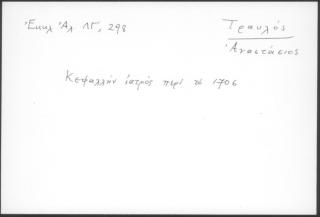 Ἐκκλ Ἀλ ΛΓ', 298
Τραυλός
Ἀναστάσιος
Κεφαλλὴν ἰατρός περὶ τὸ 1706